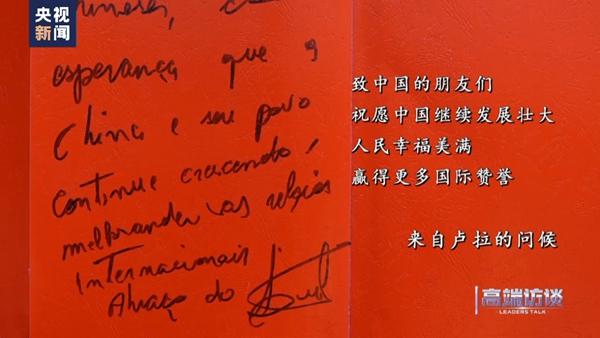 央视
新闻
esperança que a
China e seu povo
continue crescendo,
as relações
Internacionais
Abraço do
致中国的朋友们
祝愿中国继续发展壮大
人民幸福美满
赢得更多国际赞誉
来自卢拉的问候
高端访谈
LEADERS TALK